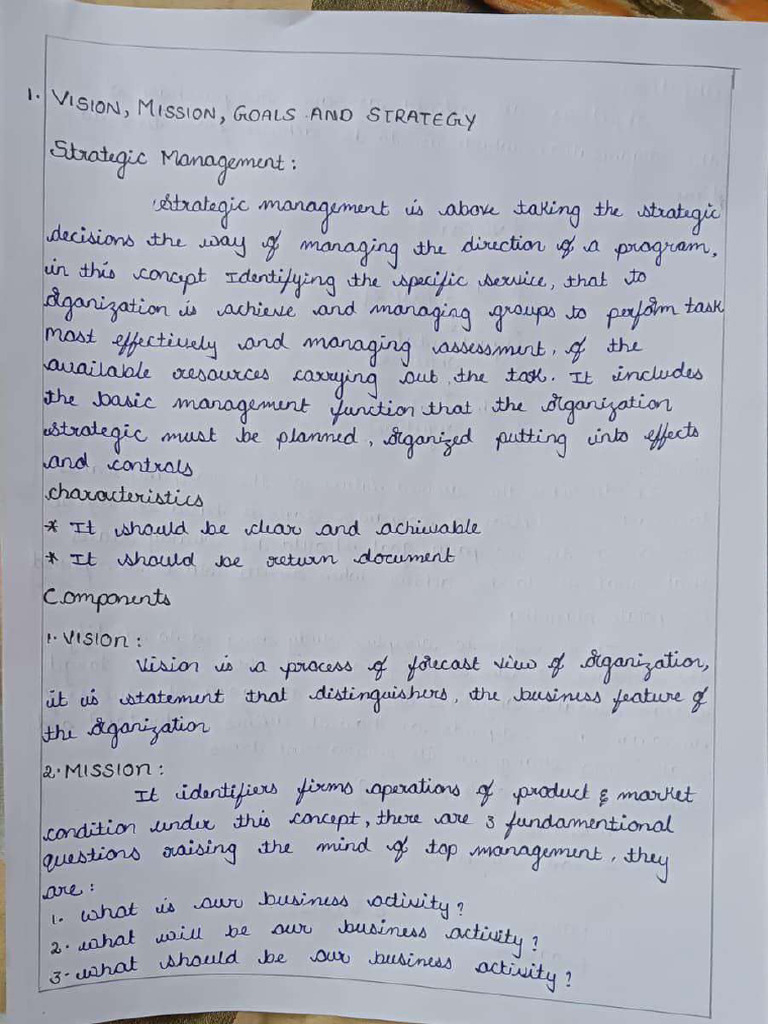 1. VISION, MISSION, GOALS AND STRATEGY
Strategic Management :
Strategic management is above taking the strategic
decisions the way of managing the direction of a program,
in this concept Identifying the specific service, that to
Organization is achieve and managing groups to perform task
most effectively and managing assessment, of the
available resources carrying out the task. It includes
the basic management function that the organization
strategic must be planned, organized putting into effects
and controls
characteristics
* It should be clear and achiwable
* It should be return document
Components
1. VISION :
Vision is a process of forecast view of organization,
it is statement that distinguishers, the business feature of
the organization
2. MISSION :
It identifiers firms operations of product & market
condition under this concept, there are 3 fundamentional
questions raising the mind of top management, they
are :
1. what is our business activity ?
2. what will be our business activity ?
3. what should be our business activity ?